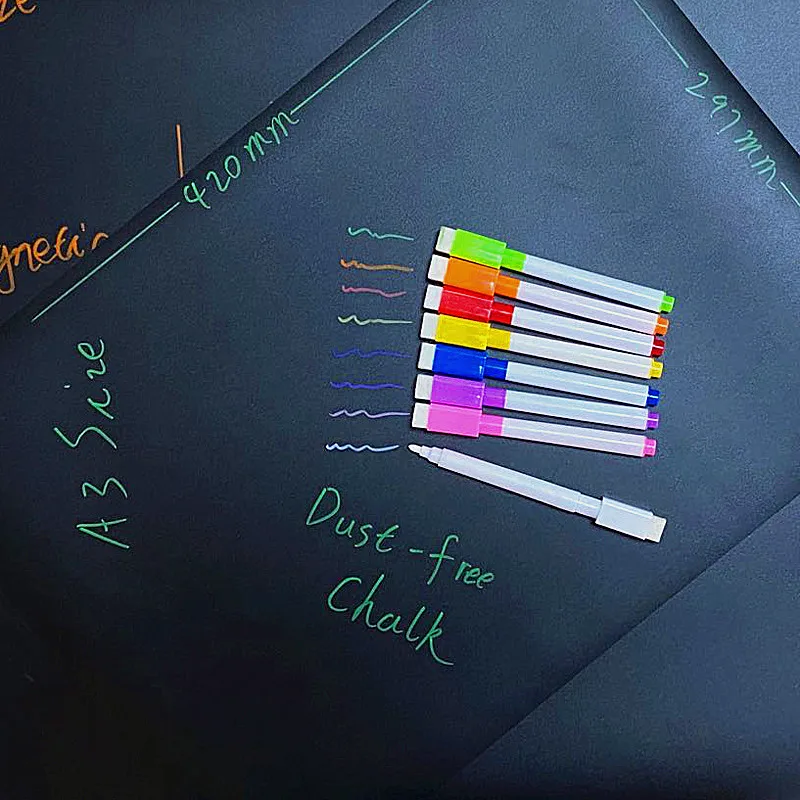 420mm
297mm
A3 Size
Dust-free
Chalk